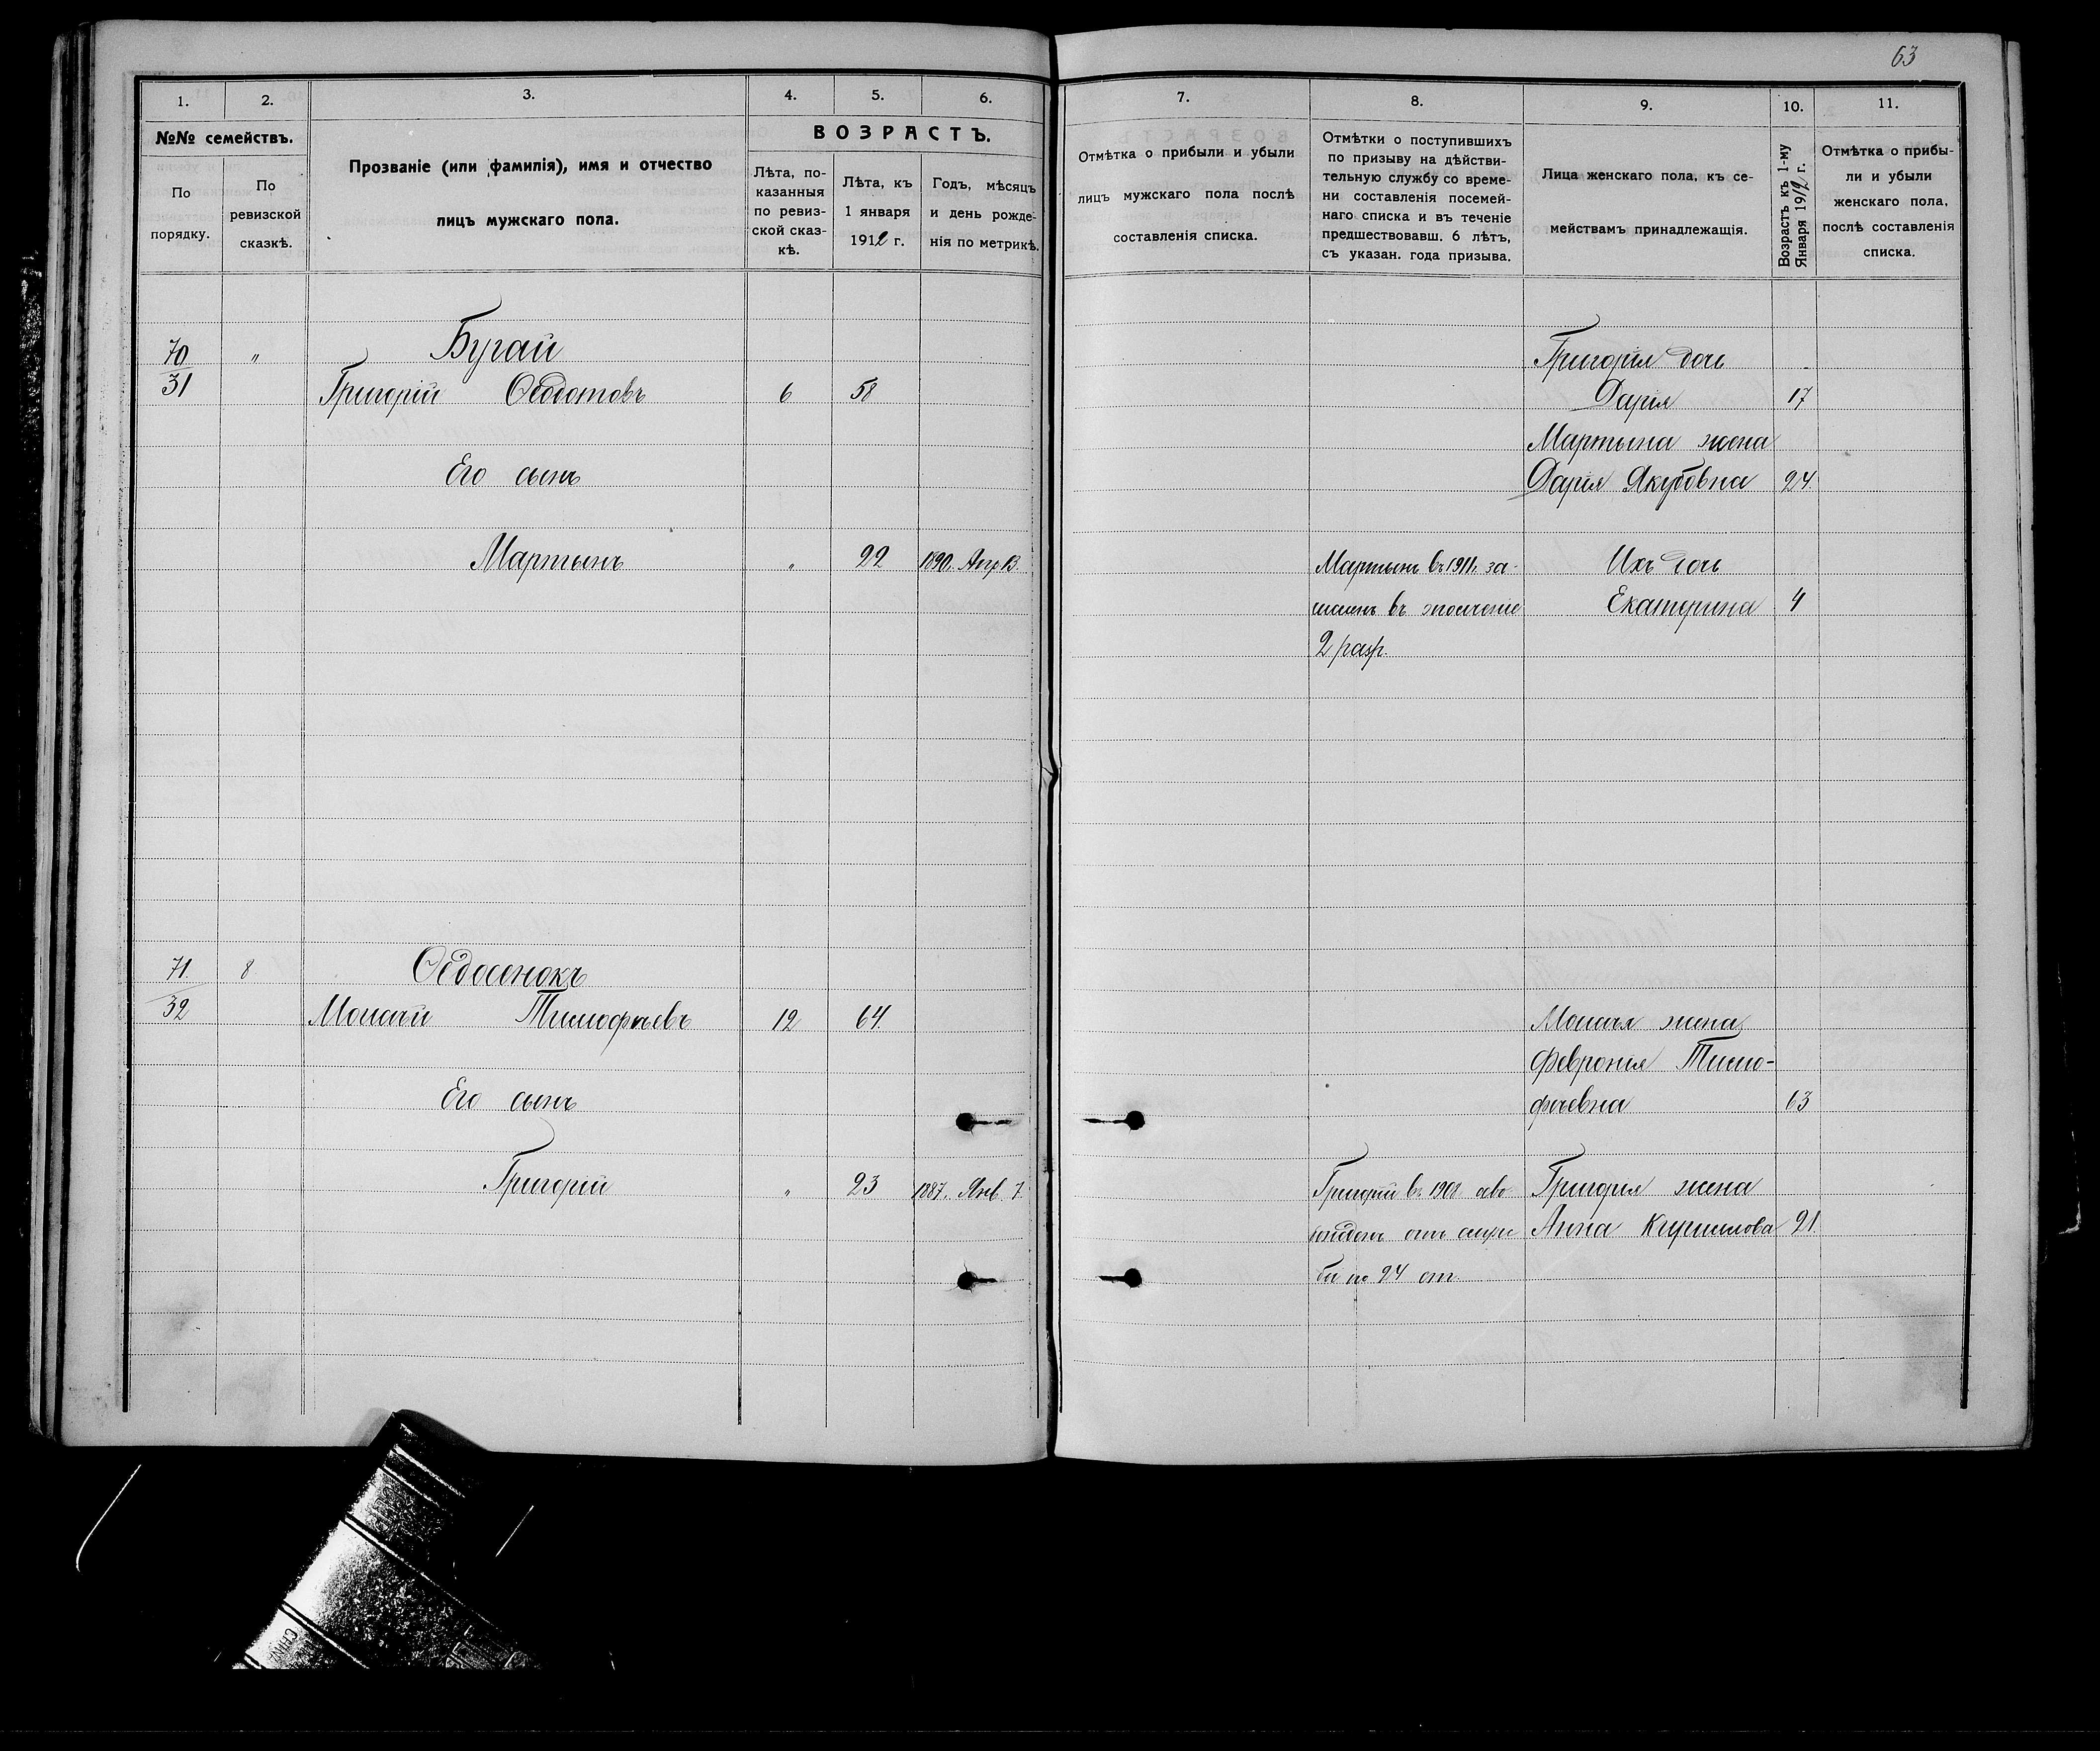 63
1. 2. 3. 4. 5. 6.
№№ семействъ.
По порядку.
По ревизской сказкѣ.
Прозваніе (или фамилія), имя и отчество
лицъ мужскаго пола.
ВОЗРАСТЪ.
Лѣта, по-
казанныя
по ревиз-
ской сказ-
кѣ.
Лѣта, къ
1 января
1912 г.
Годъ, мѣсяцъ
и день рожде-
нія по метрикѣ.
70 „ Бугай
31 Григорій Ѳедотовъ 6 58
Его сынъ
Мартынъ „ 22 1890. Апр 13
71. 8 Ѳедосенокъ
32 Моисѣй Тимофѣевъ 12 64.
Его сынъ
Григорій „ 23 1887. Янв. 7.
7. 8. 9. 10. 11.
Отмѣтка о прибыли и убыли
лицъ мужскаго пола послѣ
составленія списка.
Отмѣтки о поступившихъ
по призыву на дѣйстви-
тельную службу со време-
ни составленія посемей-
наго списка и въ теченіе
предшествовавш. 6 лѣтъ,
съ указан. года призыва.
Лица женскаго пола, къ се-
мействамъ принадлежащія.
Возрастъ къ 1-му
Января 1912 г.
Отмѣтка о прибы-
ли и убыли
женскаго пола,
послѣ составленія
списка.
Григорія дочь
Дарія 17
Мартына жена
Дарія Якубовна 24.
Мартынъ въ 1911г. за- Ихъ дочь
численъ въ ополченіе Екатерина 4
2 разр.
Моисѣя жена
Февронія Тимо-
фѣевна 63
Григорій въ 1908 осво- Григорія жена
божденъ отъ служ Анна Кирилова 21.
бы по 24 ст.